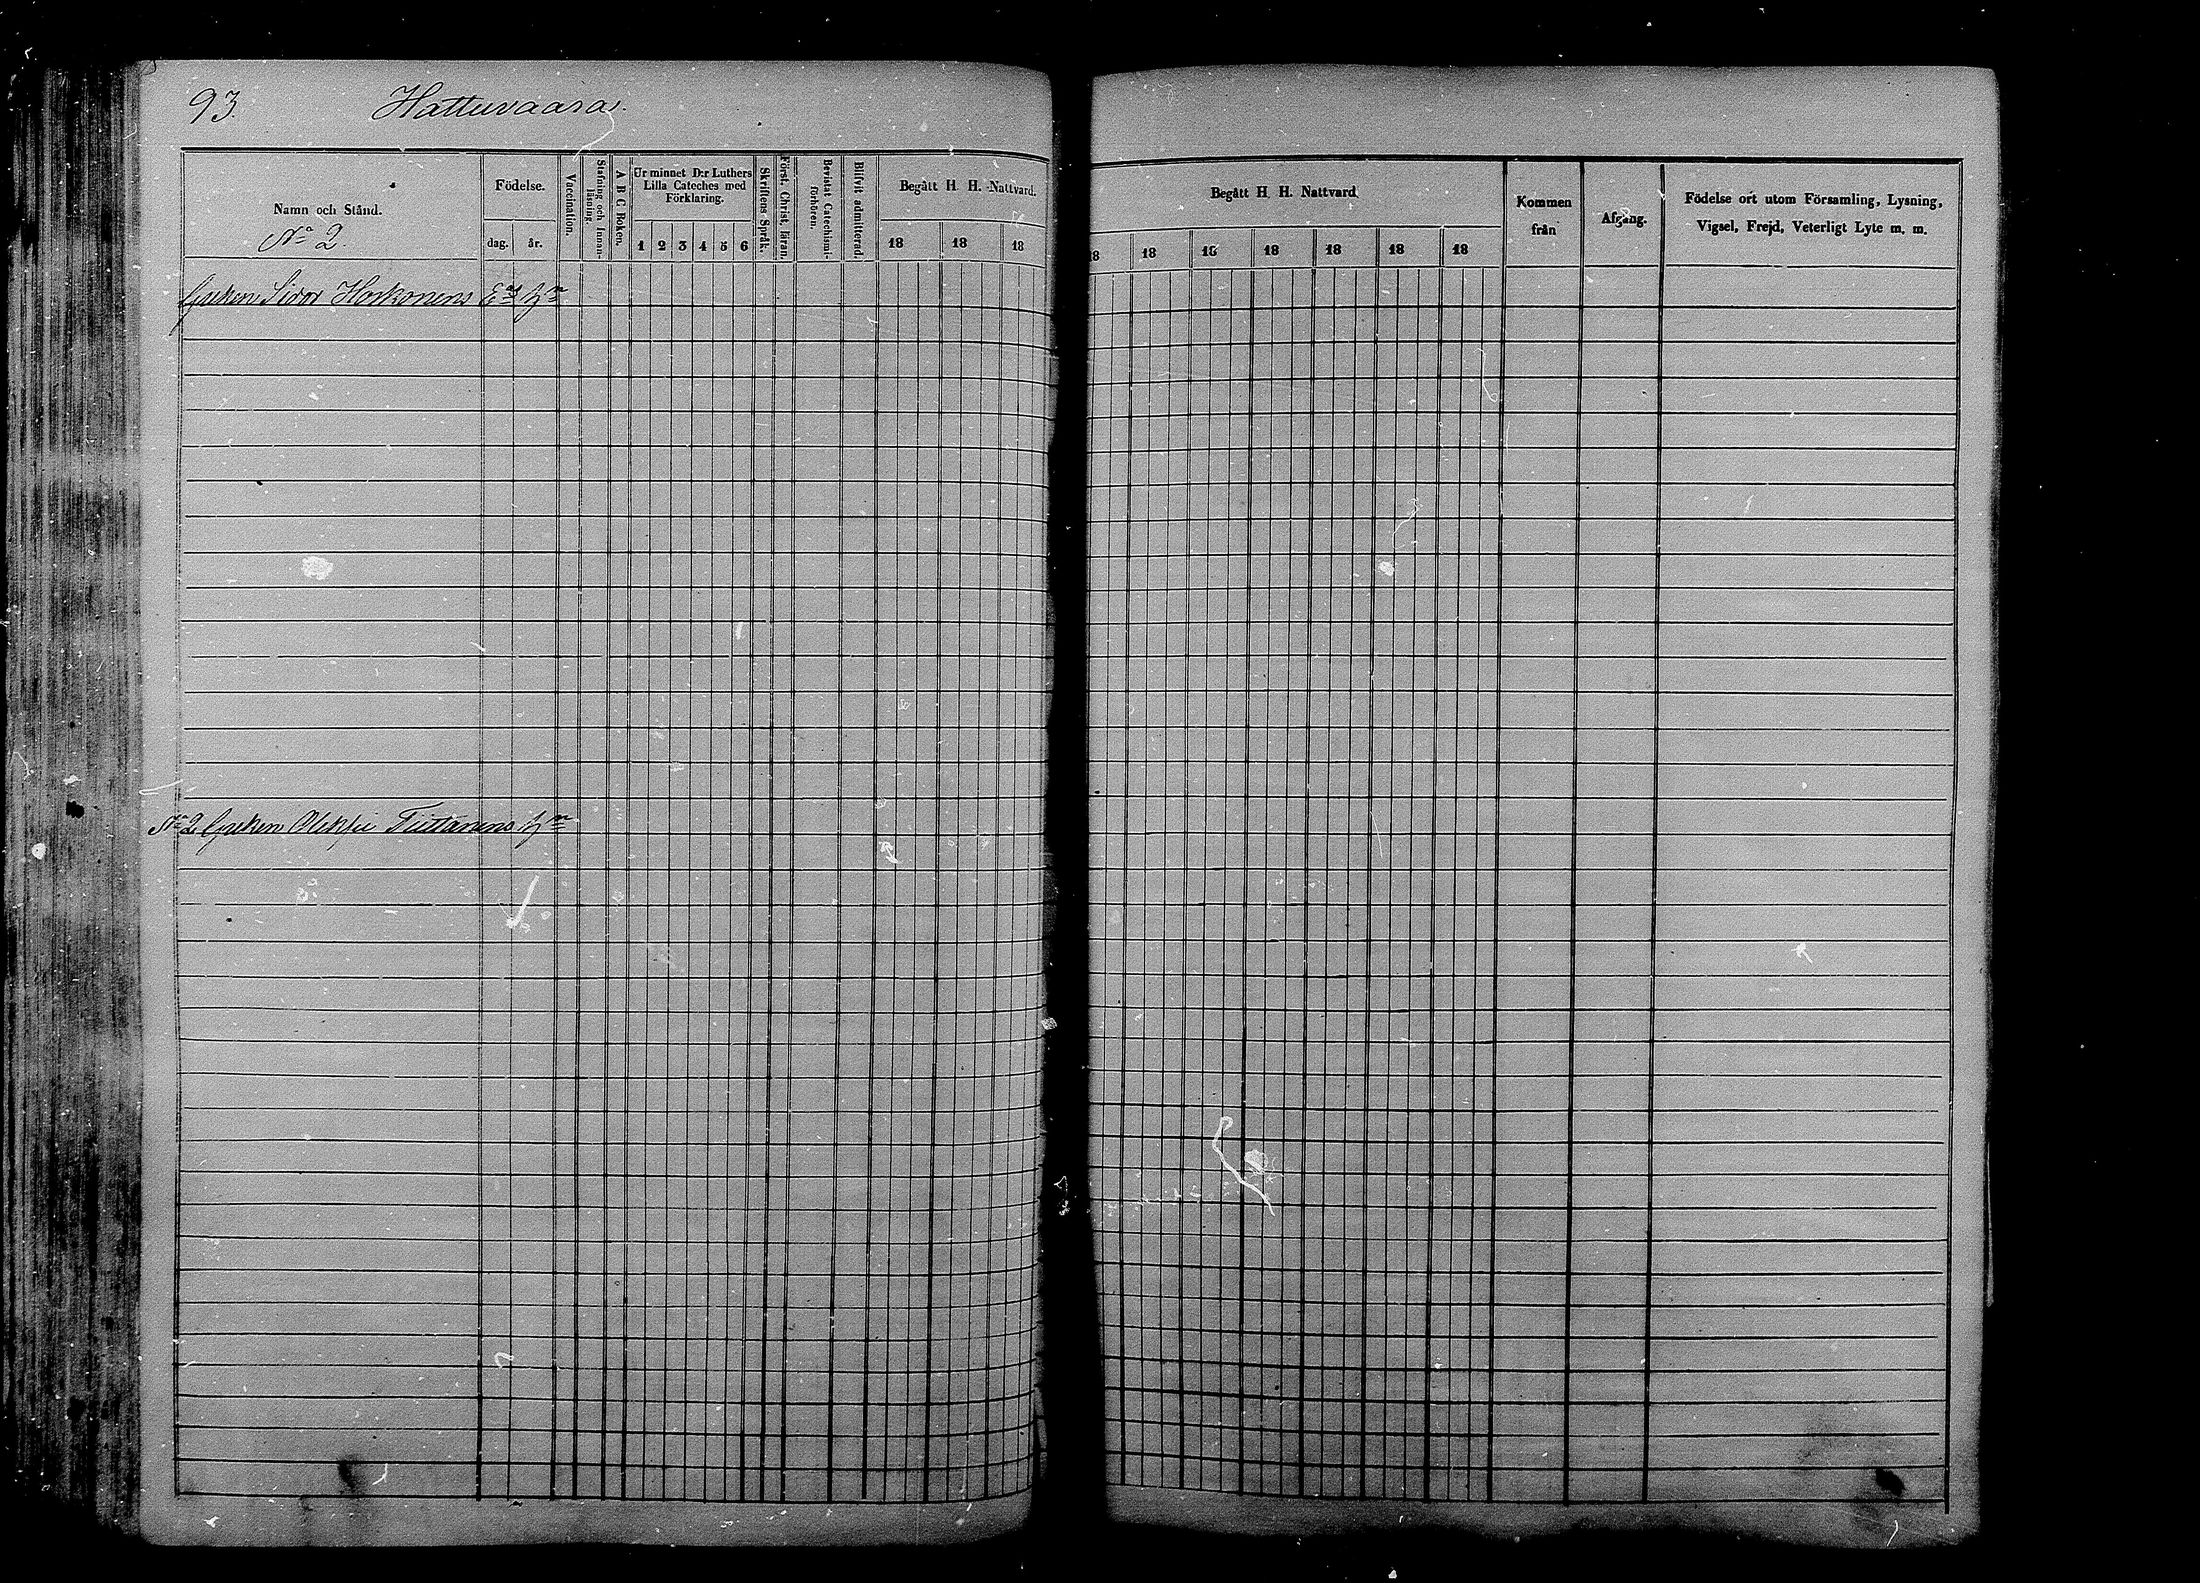 93. Hattuvaara.
Namn och Stånd.
No 2.
Födelse.
dag. år.
Vaccination.
Stafning och Innan-
läsning.
A B C Boken.
Ur minnet D:r Luthers
Lilla Cateches med
Förklaring.
1 2 3 4 5 6
Skriftens Språk.
Först. Christ. läran.
Bevistat Catechismi-
förhören.
Blifvit admitterad.
Begått H. H. Nattvard.
18 18 18
Begått H. H. Nattvard
18 18 18 18 18 18 18
Kommen
från
Afgång.
Födelse ort utom Församling, Lysning,
Vigsel, Frejd, Veterligt Lyte m. m.
Greken Sidor Hoskonens
No 2 Greken Oleksei Tiittanens